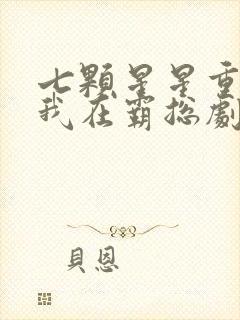 七顆星星重
我在霸總劇
貝恩